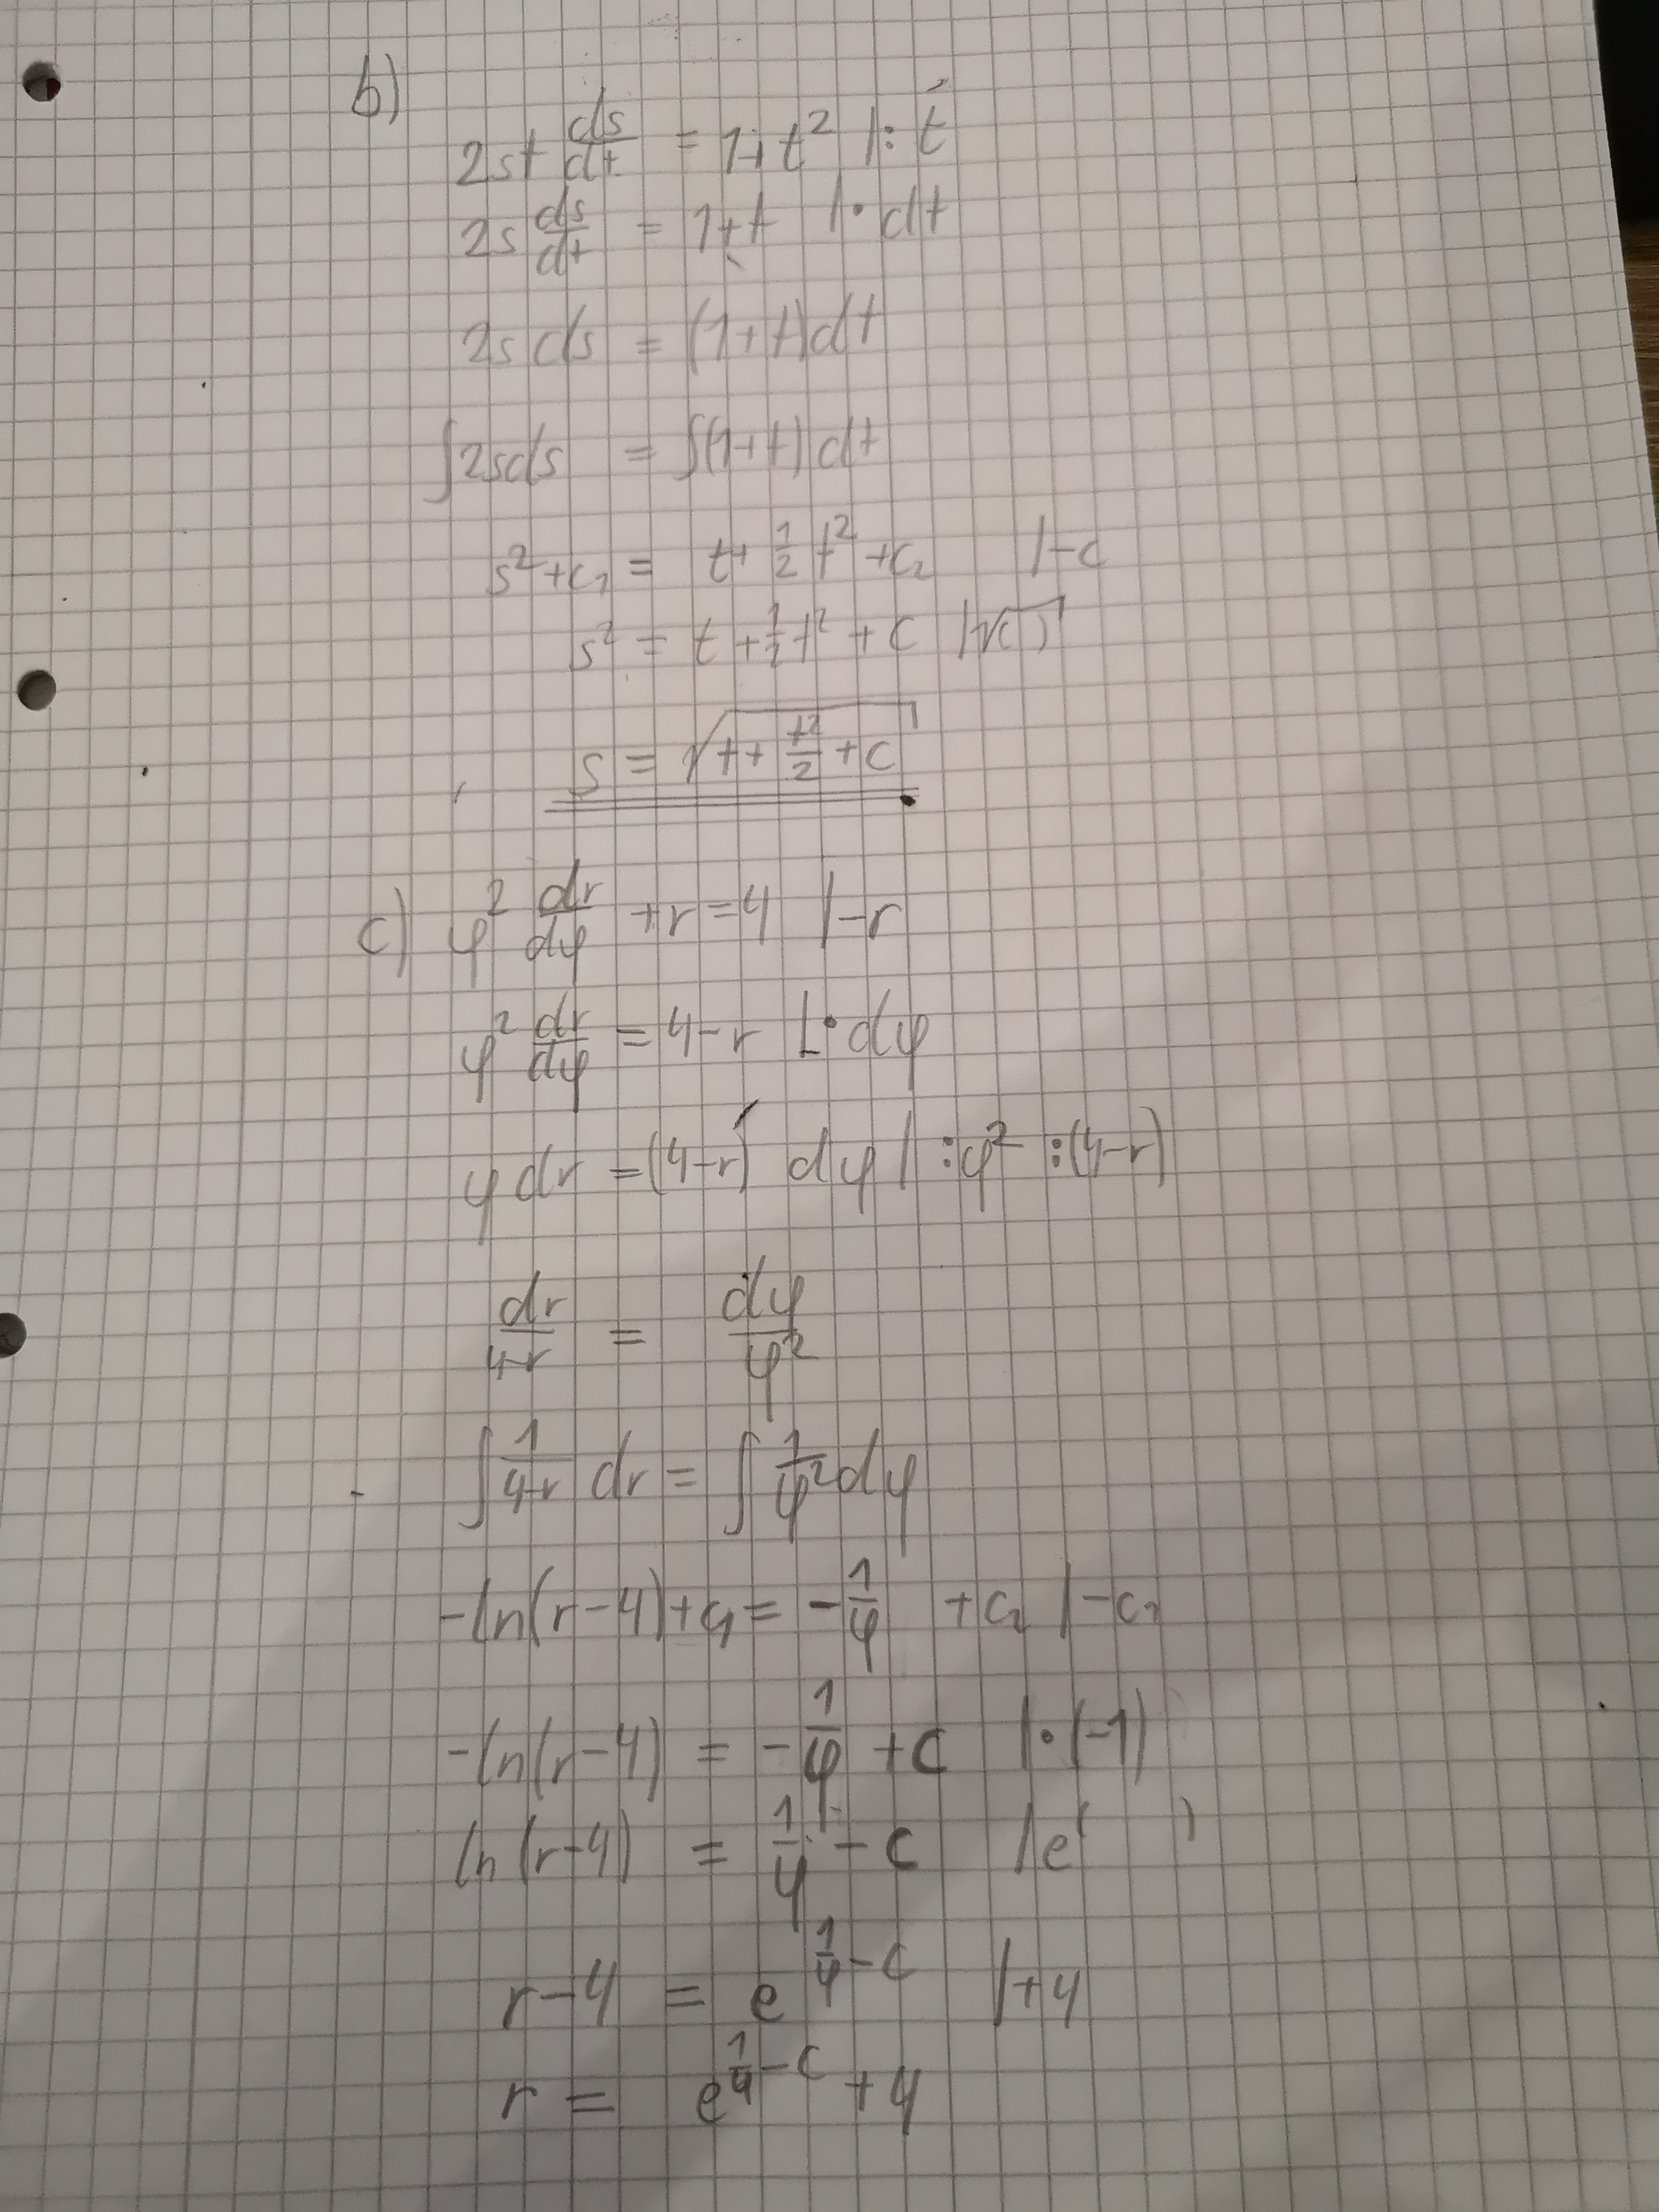 b)
2st ds/dt = 1+t² |: t
2s ds/dt = 1+t |· dt
2s ds = (1+t)dt
∫2sds = ∫(1+t) dt
s²+c₁ = t+ 1/2 t² +c₂ |-c
s² = t + 1/2 t² + c |√( )
s = √(t + t²/2 + c)
c) φ² dr/dφ +r=4 |-r
φ² dr/dφ = 4-r |· dφ
φ dr = (4-r) dφ | :φ² :(4-r)
dr/4-r = dφ/φ²
∫ 1/4-r dr = ∫ 1/φ² dφ
-ln(r-4)+c₁ = - 1/φ +c₂ |-c₁
-ln(r-4) = - 1/φ +c |· (-1)
ln(r-4) = 1/φ - c |e^( )
r-4 = e^(1/φ - c) |+4
r = e^(1/φ - c) +4